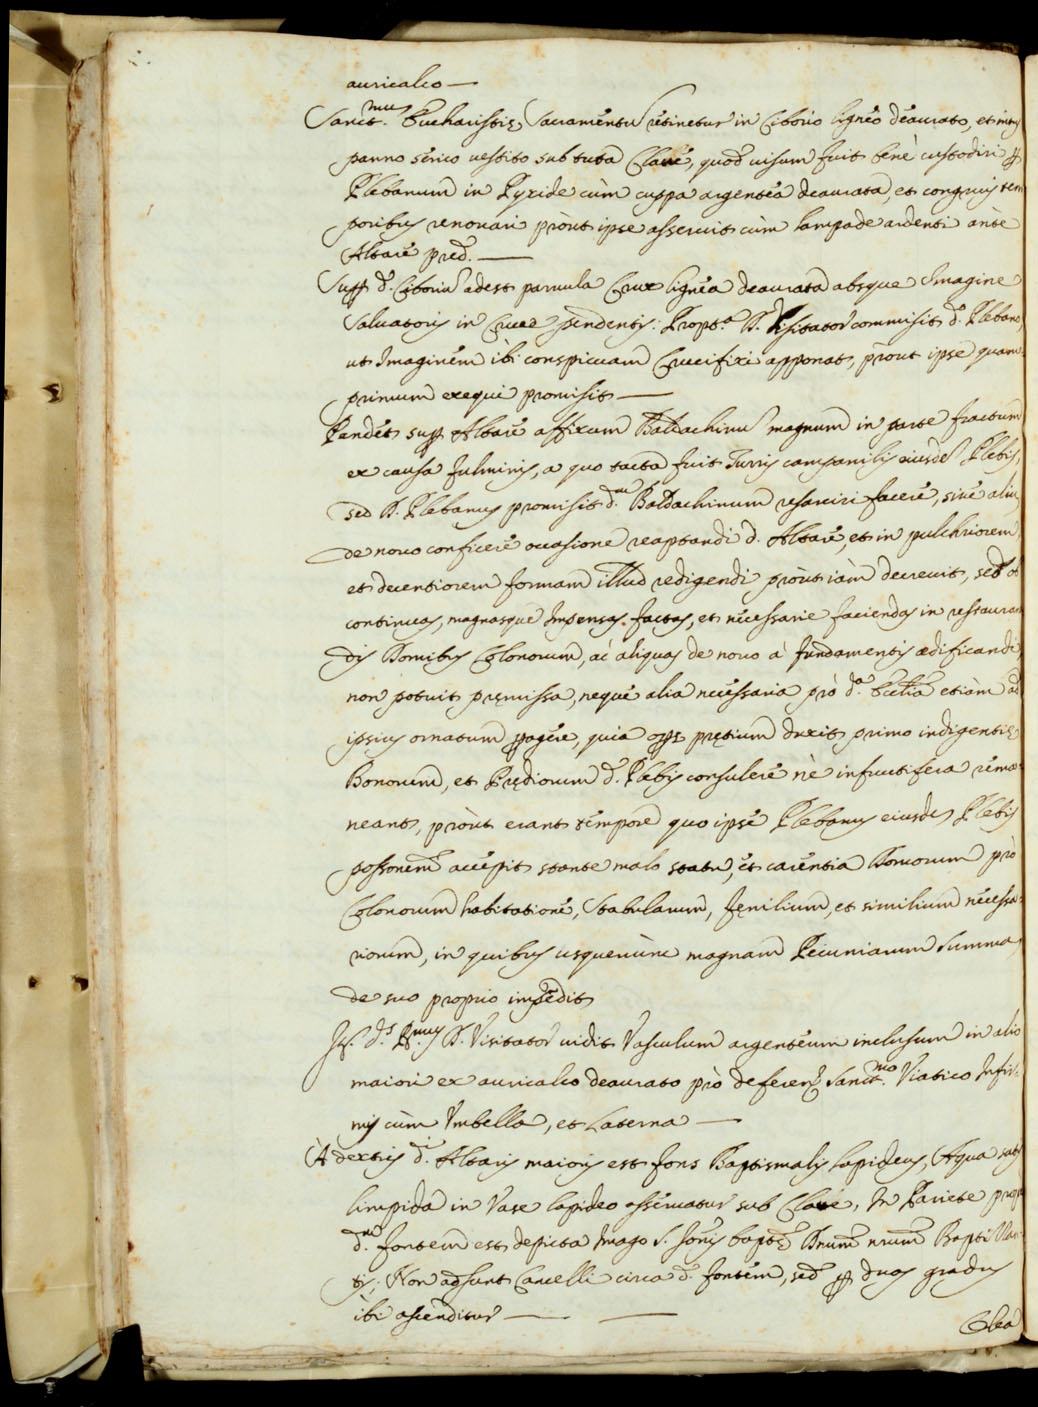 auricalco —
Sanct.mũ Eucharistię Sacramentũ retinetur in Ciborio ligneo deaurato, et intus
panno serico uestito sub tuta Clave, quod uisum fuit benè custodiri ꝑ
Plebanum in Pyxide cùm cuppa argentea deaurata, et congruis tem
poribus renouari proùt ipse asseruit cùm lampade ardenti ante
Altare pred. —
Supꝑ d. Ciboriũ adest paruula Crux lignea deaurata absque Imagine
Saluatoris in Cruce pendentis: Propt.a D. Visitator commisit d.o Plebano,
ut Imaginem ibi conspicuam Crucifixi apponat, proùt ipse quam
primum exequi promisit —
Pendet supꝑ Altare affixum Baldachinũ magnum in parte fractum
ex causa fulminis, a quo tacta fuit Turris campanilis eiusdẽ Plebis,
sed D. Plebanus promisit d.um Baldachinum resarciri facere, siue aliud
de nouo conficere occasione reaptandi d. Altare, et in pulchriorem,
et decentiorem formam illud redigendi proùt iàm decreuit, sed ob
continuas, magnasque Impensas factas, et necessarie faciendas in restauran
dis Domibus Colonorum, ac aliquas de nouo à fundamentis ædificandi,
non potuit pręmissa, neque alia necessaria prò d.a Eccľia etiàm ad
ipsius ornatum ꝑagere, quia opꝑę pretium duxit primo indigentię
Bonorum, et Prędiorum d. Plebis consulere nè infructifera rema=
neant, proùt erant tempore quo ipse Plebanus eiusdẽ Plebis
possonem accepit stante malo statu, et carentia Domorum prò
Colonorum habitatione, Stabularum, Fęnilium, et similium necessa
riorum, in quibus usquenùnc magnam Pecuniarum Summã
de suo proprio impendit
It. d.s R.mus D. Visitator uidit Vasculum argenteum inclusum in alio
maiori ex auricalco deaurato prò deferen. Sanct.mo Viatico Infir=
mis cùm Vmbella, et Laterna —
À dextris d.i Altaris maioris est fons Baptismalis lapideus, Aqua satis
limpida in Vase lapideo asseruatur sub Claue, In Pariete prope
d.um fontem est depicta Imago S. Joñis bapt.ę Dnum nrum Baptizan
tis; Non adsunt Cancelli circa d. fontem, sed ꝑ duos gradus
ibi ascenditur — —
Olea